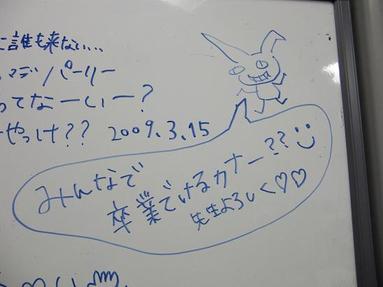 に誰も来ない...
マデパーリー
ってなーいー?
やっけ?? 2009.3.15
みんなで
卒業でけるカナー??
先生よろしく♡♡